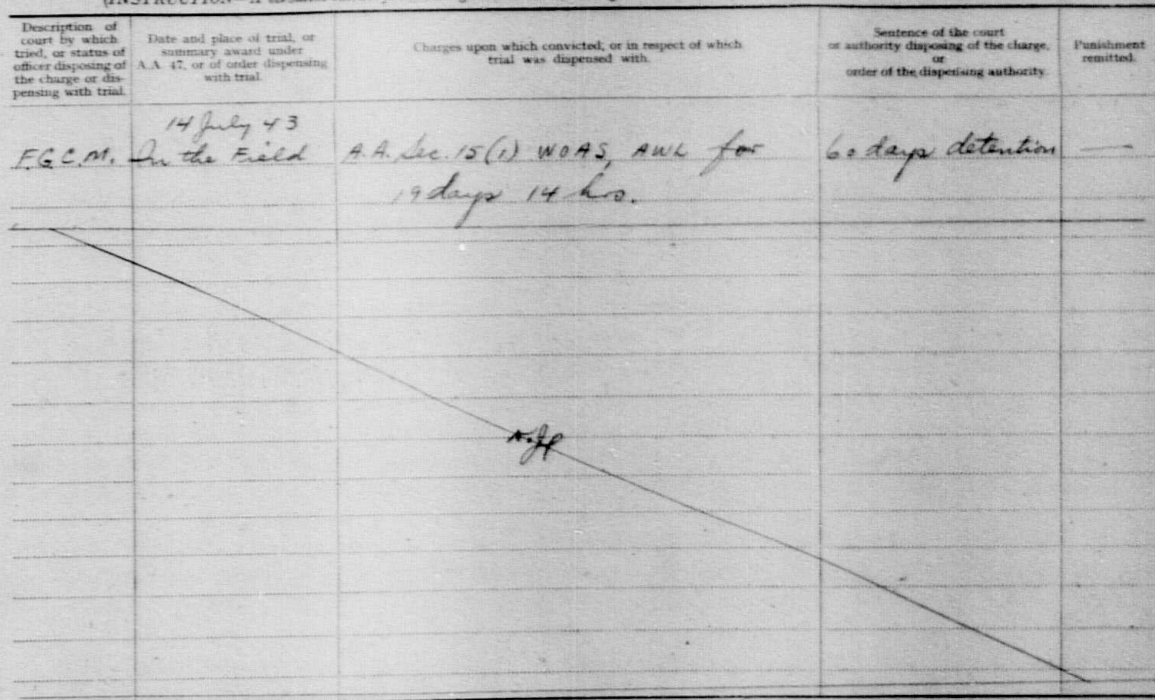 Description of
court by which
tried, or status of
officer disposing of
the charge or dis-
pensing with trial.
Date and place of trial, or
summary award under
A.A. 47, or of order dispensing
with trial.
Charges upon which convicted; or in respect of which
trial was dispensed with.
Sentence of the court
or authority disposing of the charge,
or
order of the dispensing authority.
Punishment
remitted.
14 July 43
F.G.C.M. In the Field A.A. Sec. 15(1) WOAS, AWL for 60 days detention —
19 days 14 hrs.